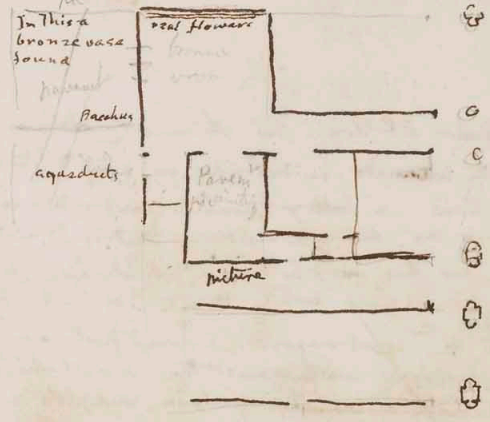 In This a
bronze vase
found
real flowers
Bacchus
aquaducts
Pavem
picture